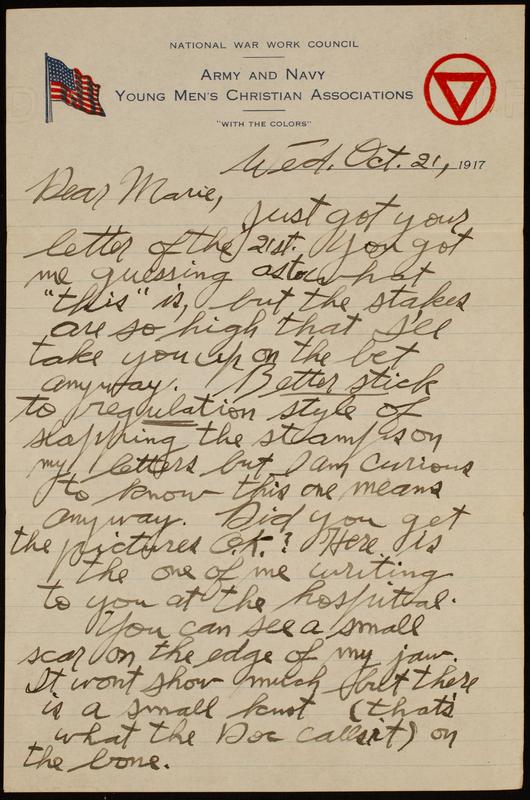 NATIONAL WAR WORK COUNCIL
ARMY AND NAVY
YOUNG MEN'S CHRISTIAN ASSOCIATIONS
"WITH THE COLORS"
Wed. Oct. 21, 1917
Dear Marie,
Just got your
letter of the 21st. You got
me guessing as to what
"this" is, but the stakes
are so high that I'll
take you up on the bet
anyway. Better stick
to regulation style of
slapping the stamps on
my letters but I am curious
to know this one means
anyway. Did you get
the pictures O.K.? Here is
the one of me writing
to you at the hospital.
You can see a small
scar on the edge of my jaw.
It wont show much but there
is a small knot (that's
what the Doc calls it) on
the bone.